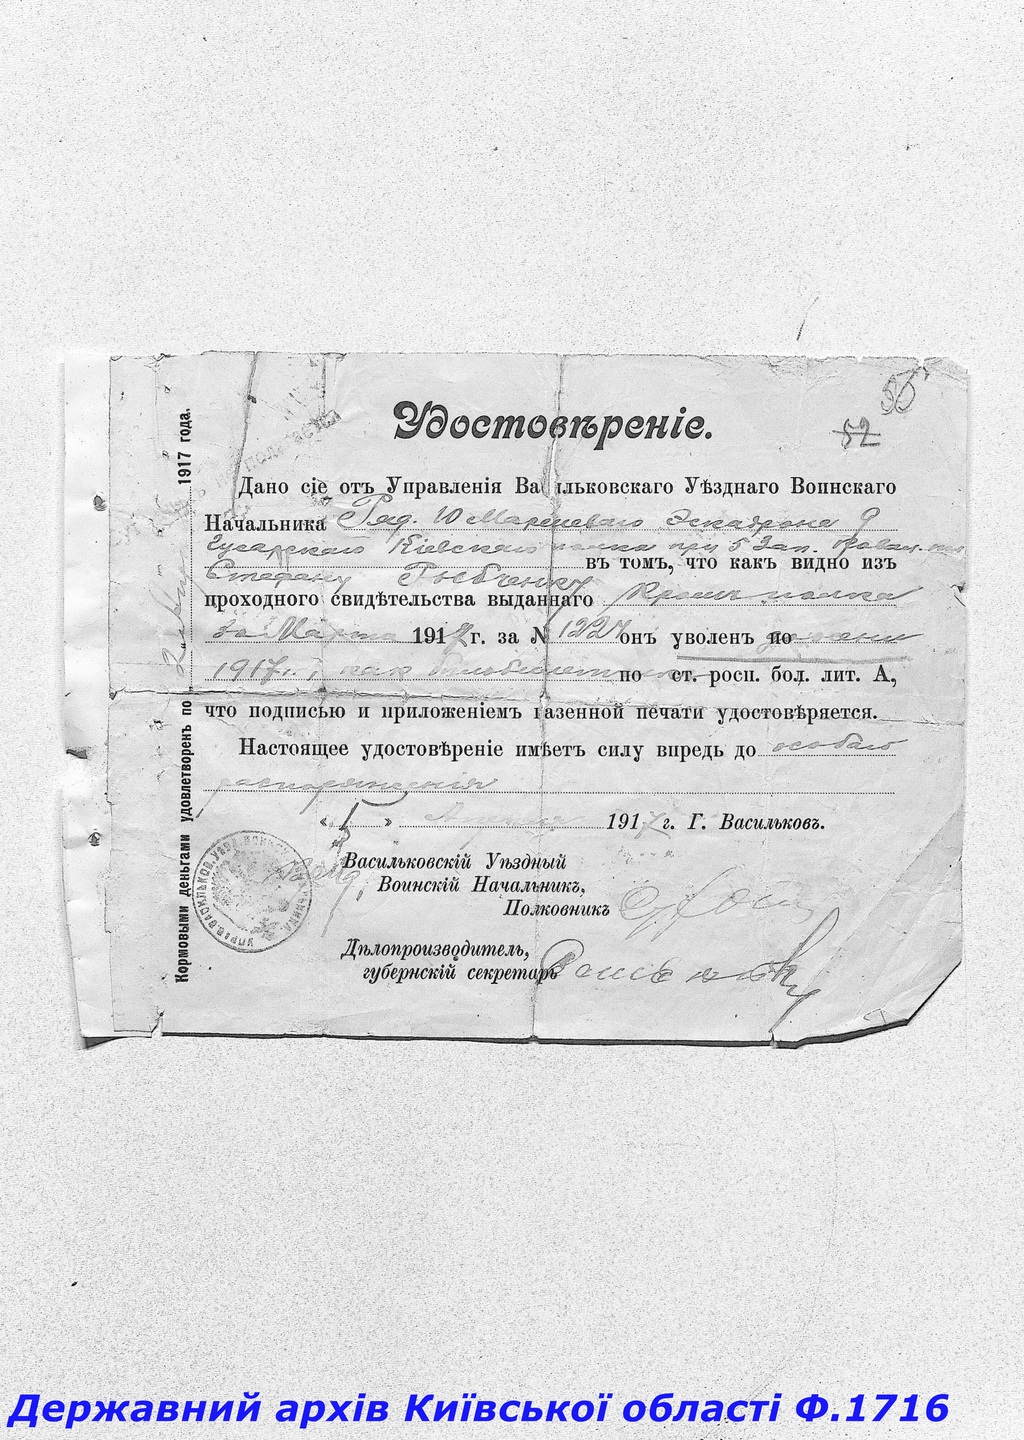 55
52
Удостовѣреніе.
Дано сіе отъ Управленія Васильковскаго Уѣзднаго Воинскаго
Начальника Ряд. 10 Маршеваго Эскадрона 9
Гусарскаго Кіевскаго полка при 5 Зап. Кавал.
въ томъ, что какъ видно изъ
Стефану Рыбченку
проходного свидѣтельства выданнаго полка
Марта 1917 г. за № 1227 онъ уволенъ по
1917 г., как по ст. росп. бол. лит. А,
что подписью и приложеніемъ казенной печати удостовѣряется.
Настоящее удостовѣреніе имѣетъ силу впредь до особаго
распоряженія
« 1 » Апреля 1917 г. Г. Васильковъ.
Васильковскій Уѣздный
Воинскій Начальникъ,
Полковникъ
Дѣлопроизводитель,
губернскій секретарь
Кормовыми деньгами удовлетворенъ по 1917 года.
Державний архів Київської області Ф.1716